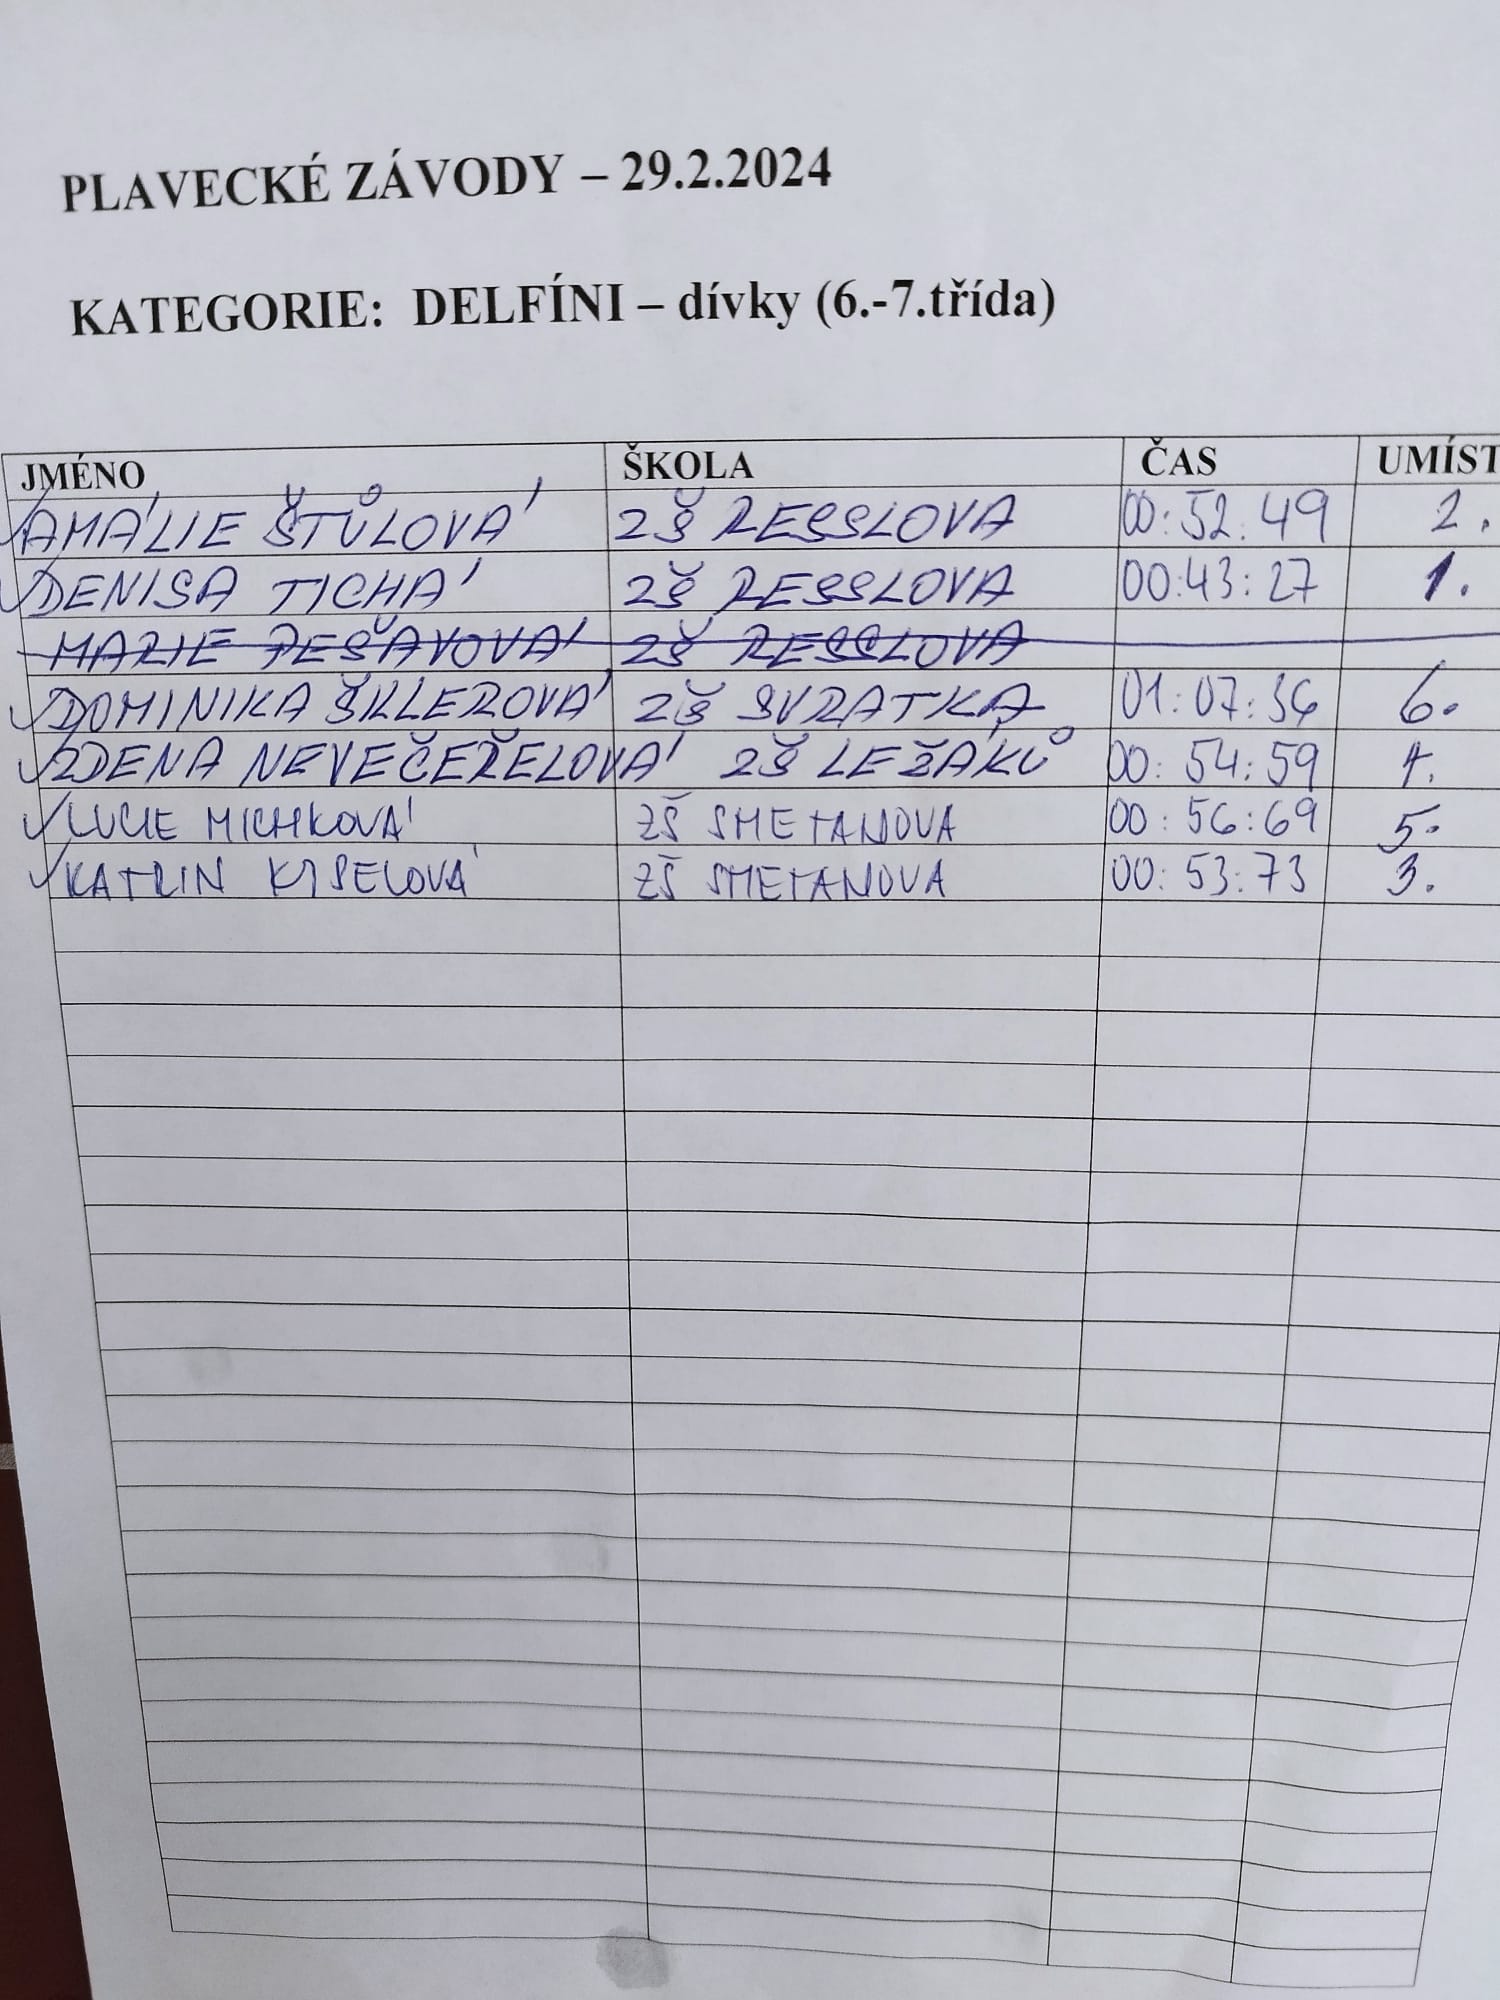 PLAVECKÉ ZÁVODY – 29.2.2024
KATEGORIE: DELFÍNI – dívky (6.-7.třída)
JMÉNO ŠKOLA ČAS UMÍST
AMÁLIE ŠTŮLOVÁ ZŠ RESSLOVA 00:52:49 2.
DENISA TICHÁ ZŠ RESSLOVA 00:43:27 1.
MARIE PEŠAVOVÁ ZŠ RESSLOVA
DOMINIKA ŠKLEROVÁ ZŠ SVRATKA 01:07:36 6.
ZDENA NEVEČEŘELOVÁ ZŠ LEŽÁKŮ 00:54:59 4.
LUCIE MICHKOVÁ ZŠ SMETANOVA 00:56:69 5.
KATRIN KYSELOVÁ ZŠ SMETANOVA 00:53:73 3.